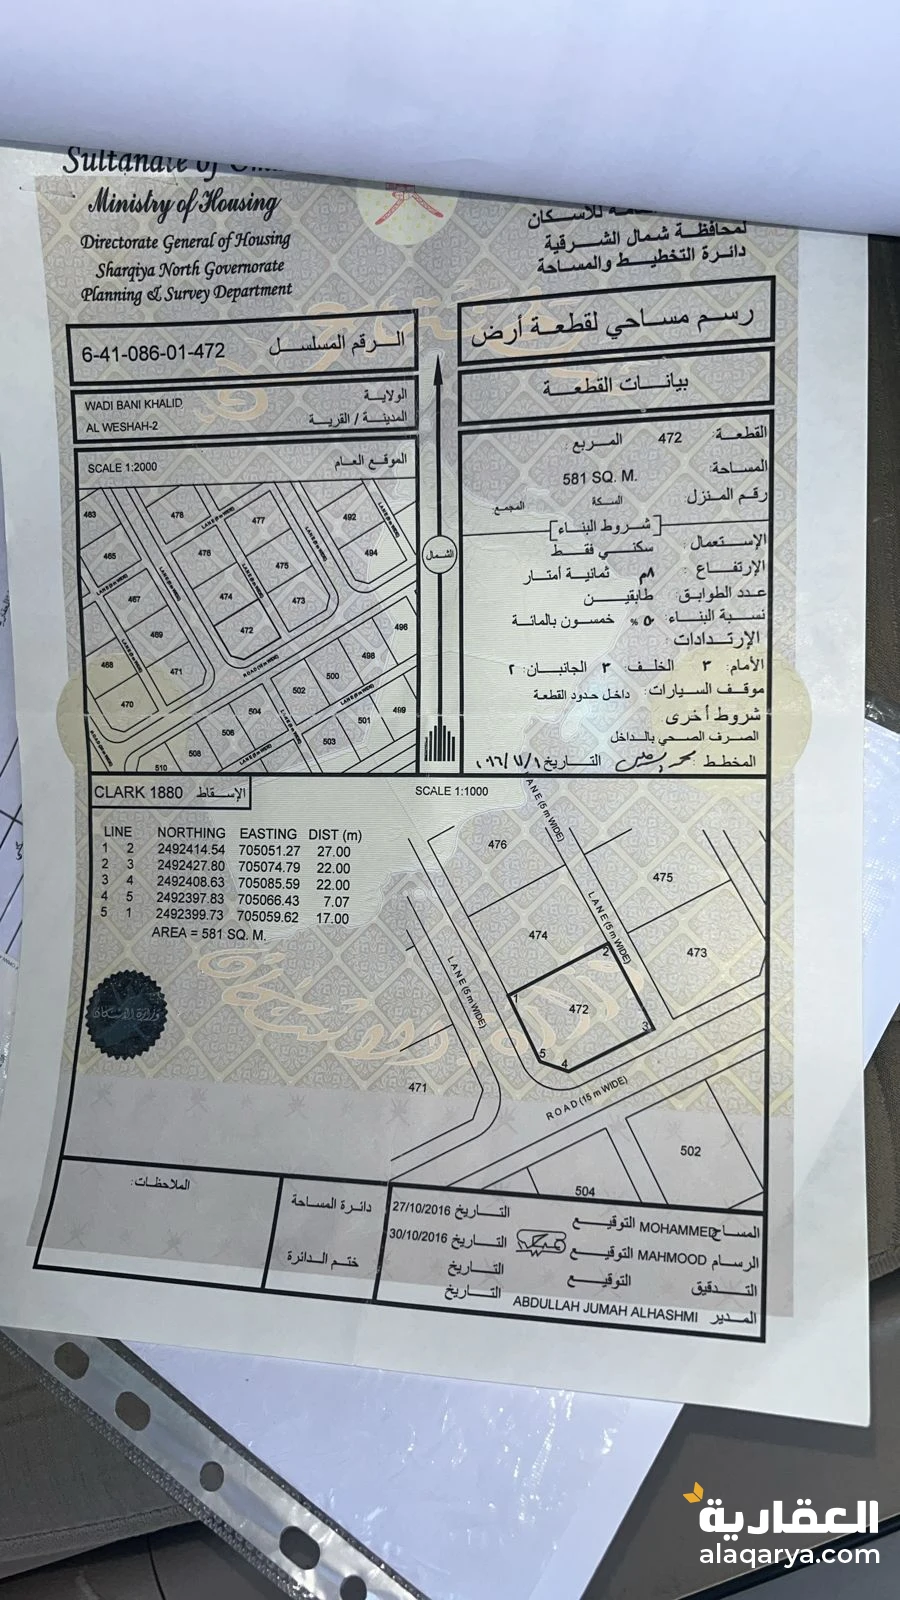 Sultanate of
Ministry of Housing
Directorate General of Housing
Sharqiya North Governorate
Planning & Survey Department
للاسكان
لمحافظة شمال الشرقية
دائرة التخطيط والمساحة
رسم مساحي لقطعة أرض
بيانات القطعة
6-41-086-01-472 الرقم المسلسل
WADI BANI KHALID الولاية
AL WESHAH-2 المدينة / القرية
SCALE 1:2000 الموقع العام
القطعة: 472 المربع:
المساحة: 581 SQ. M.
رقم المنزل السكة المجمع:
شروط البناء
الإستعمال: سكني فقط
الإرتفاع: ٨م ثمانية أمتار
عدد الطوابق: طابقين
نسبة البناء: ٥٠ % خمسون بالمائة
الإرتدادات:
الأمام: ٣ الخلف: ٣ الجانبان: ٢
موقف السيارات: داخل حدود القطعة
شروط أخرى
الصرف الصحي بالداخل
المخطط: التاريخ
الشمال
463
478
LANE (5 m WIDE)
477
492
LANE (5 m WIDE)
465
476
475
494
467
474
473
469
472
496
468
471
ROAD (15 m WIDE)
498
500
470
502
504
499
501
506
503
508
510
CLARK 1880 الإسقاط
SCALE 1:1000
LINE NORTHING EASTING DIST (m)
1 2 2492414.54 705051.27 27.00
2 3 2492427.80 705074.79 22.00
3 4 2492408.63 705085.59 22.00
4 5 2492397.83 705066.43 7.07
5 1 2492399.73 705059.62 17.00
AREA = 581 SQ. M.
LANE (5 m WIDE)
476
475
LANE (5 m WIDE)
474
473
LANE (5 m WIDE)
2
1
472
3
5
4
471
ROAD (15 m WIDE)
502
504
وزارة الاسكان
الملاحظات:
دائرة المساحة
ختم الدائرة
المساح MOHAMMED التوقيع التاريخ 27/10/2016
الرسام MAHMOOD التوقيع التاريخ 30/10/2016
التدقيق التوقيع التاريخ
المدير ABDULLAH JUMAH ALHASHMI التاريخ
العقارية
alaqarya.com